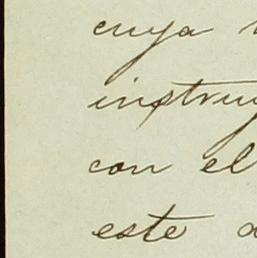 cuya
instru
con el
este a